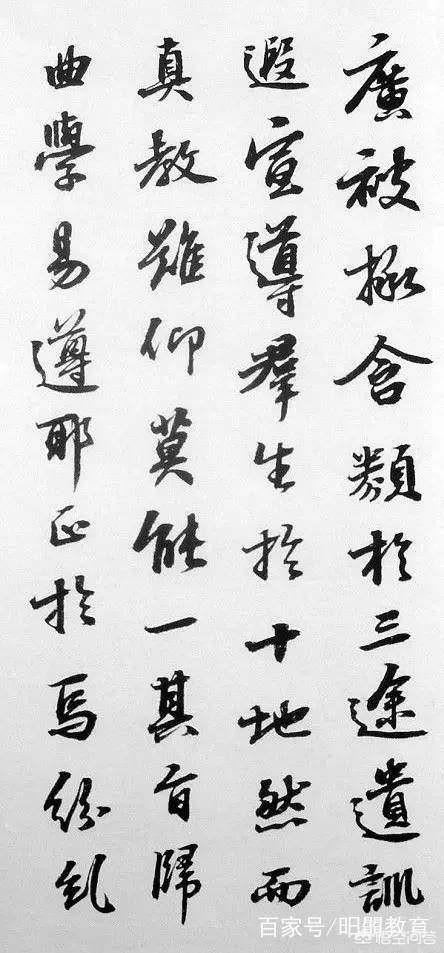 廣被拯含類於三途遺訓
遐宣導羣生於十地然而
真教難仰莫能一其旨歸
曲學易遵耶正於焉紛糺
百家号/教育
悟空问答